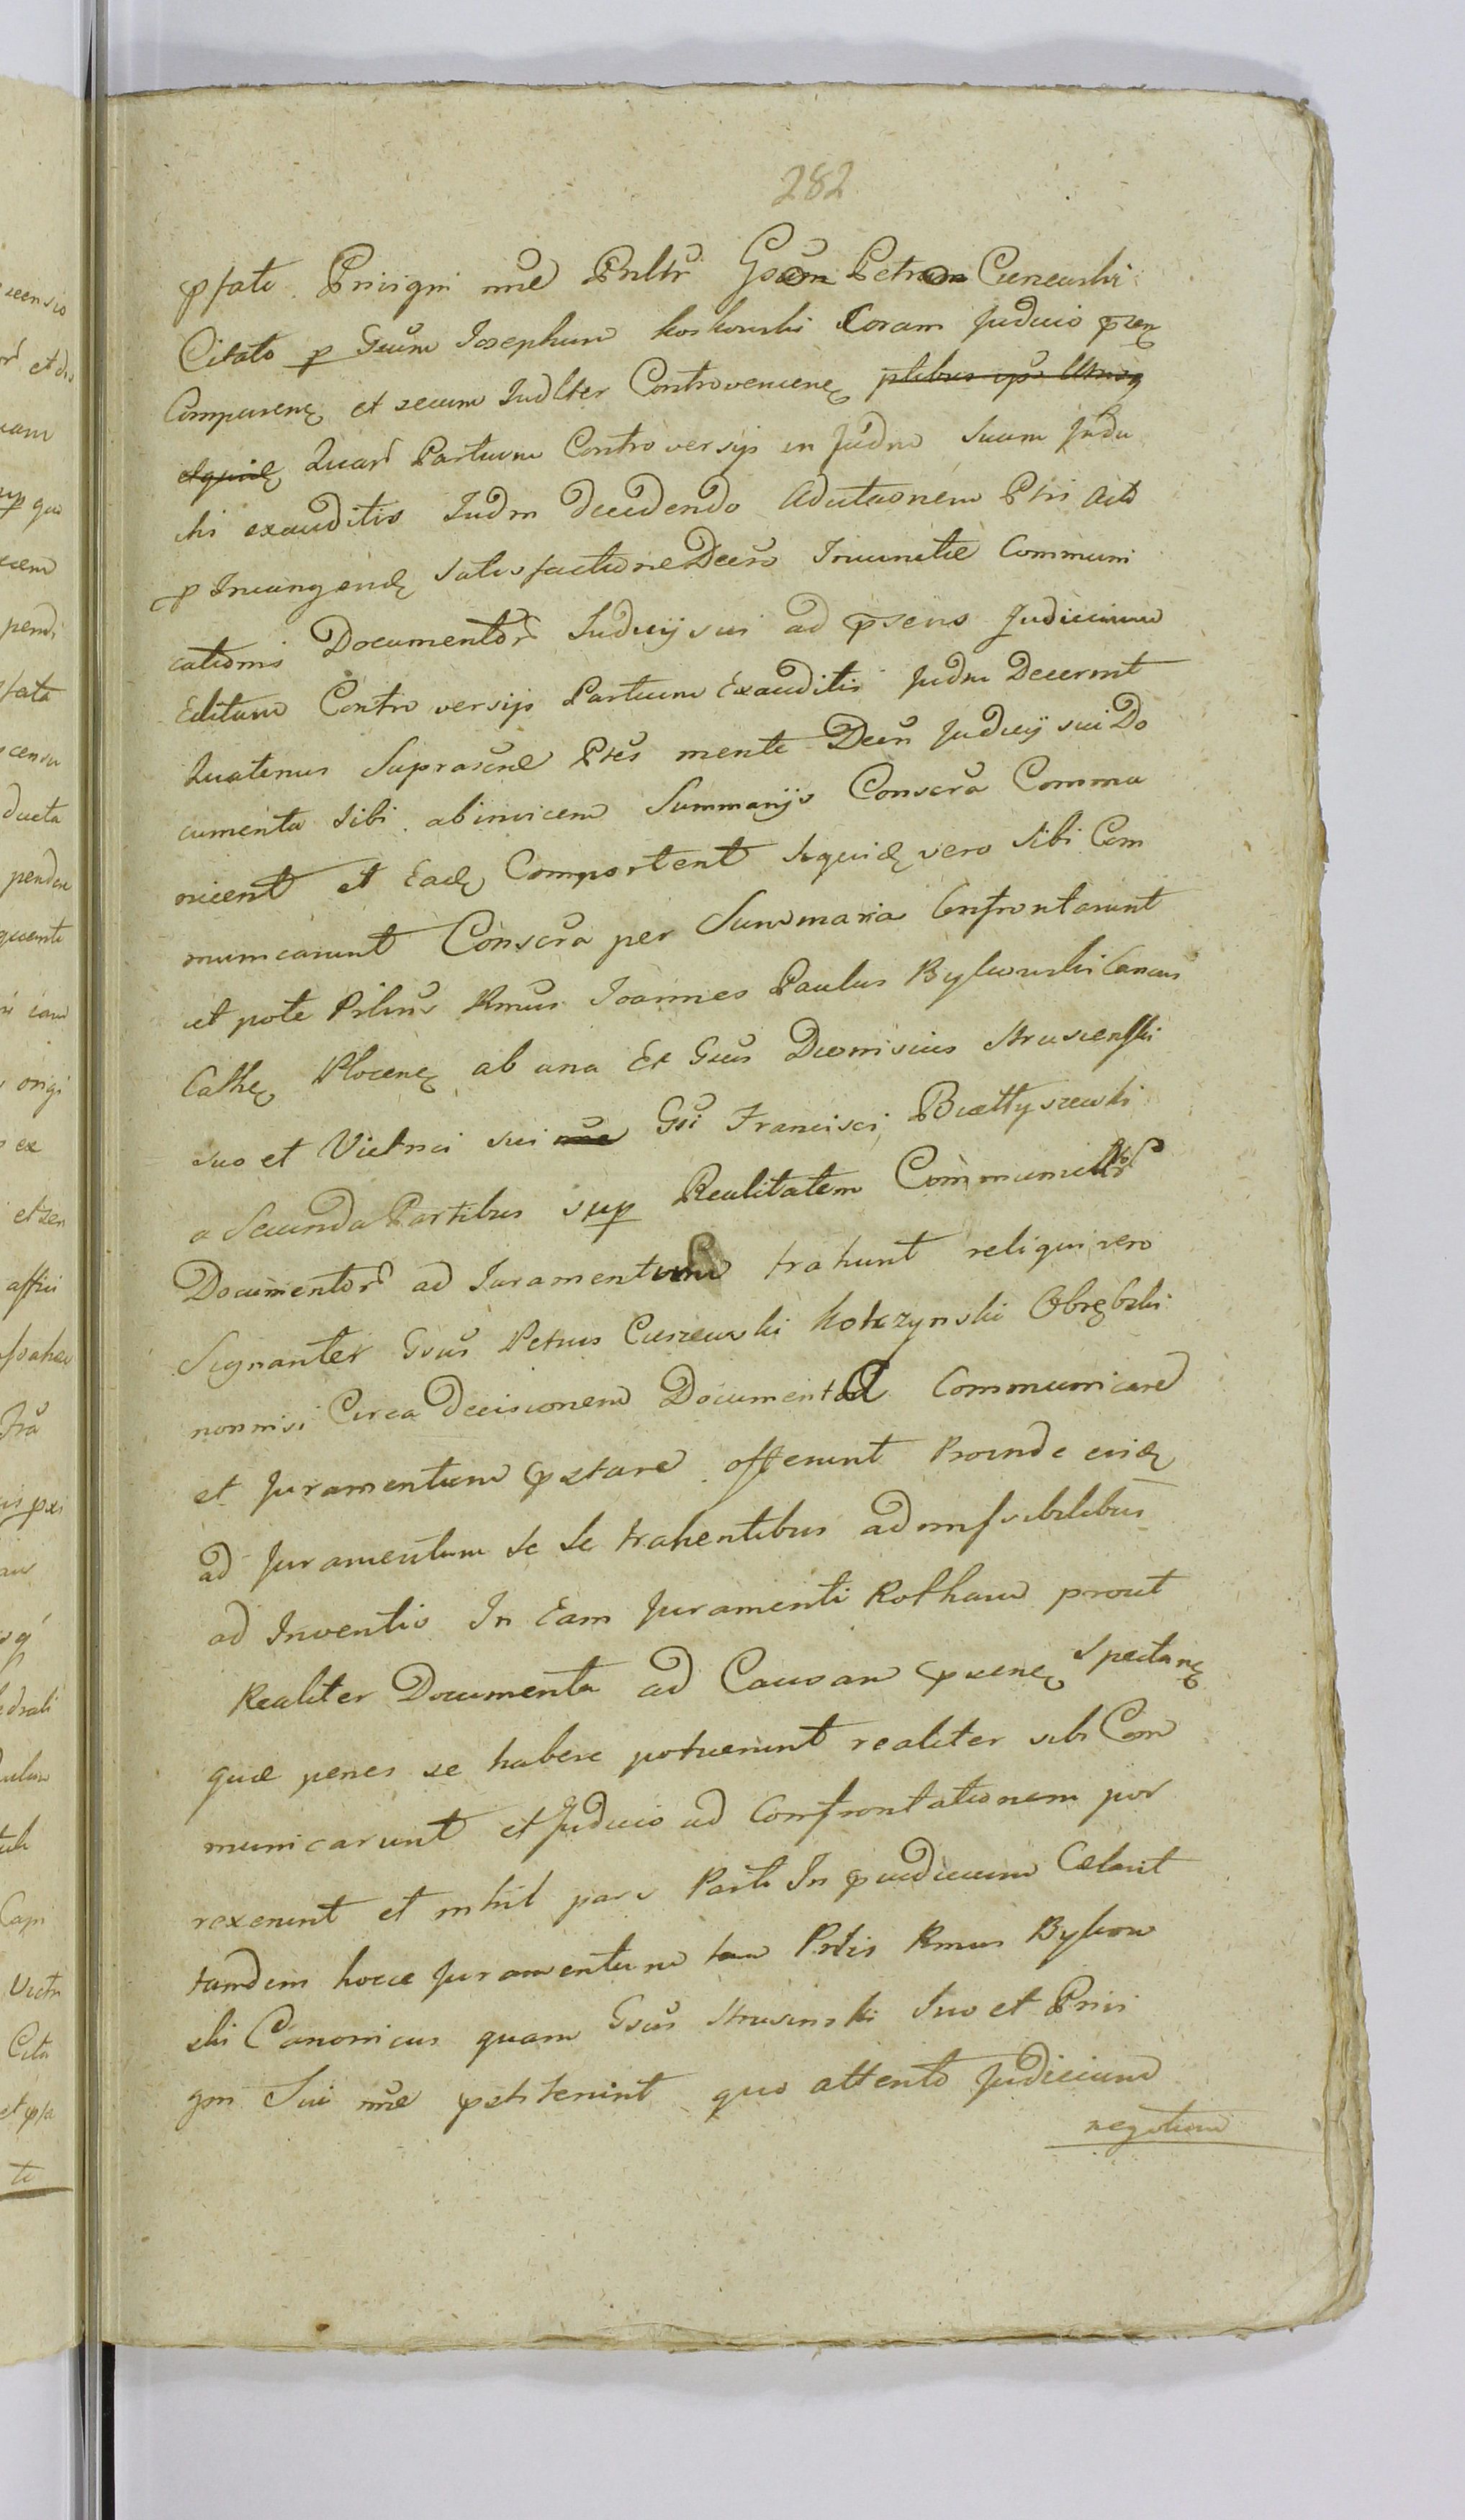 282
pfate Privigni nne Pnltr Gsum Petrum Cieszewski
Citato p Gsum Josephum Koskowski Coram Judicio psen
Comparens et secum Judlter Controveniens
Quar Partium Controversijs in Judm Suum Judu
chi exauditis Judm decidendo Adcitaonem Ptri Acto
p Iniungend satisfactione Decro Iniunctae Communi
cationis Documentor Judicij sui ad psens Judicium
Editum Controversijs Partium Exauditis Judm Decernit
Quatenus Suprascrae Ptes mente Decri Judicij sui Do
cumenta sibi abinvicem Summarijs Conscra Commu
nicent et Ead Comportent siquid vero sibi Com
municarunt Conscra per Summaria Confrontarunt
ut pote Prlnus Rmus Joannes Paulus Bykowski Cancus
Cathe Plocens ab una Et Gsus Dionisius Strusienski
suo et Victrici sui nne Gsi Francisci
a Secunda Partibus sup Realitatem
Documentor ad Juramentum trahunt reliqui vero
Signanter Gsus Petrus Cieszewski Kokczynski Obrębski
nonnisi Circa decisionem Documenta Communicare
et Juramentum pstare offerunt Proinde eisd
ad Juramentum se se trahentibus admissibilibus
ad Inventis In Eam Juramenti Rotham prout
Realiter Documenta ad Causam psens spectans
quae penes se habere potuerunt realiter sibi Com
municarunt et Judicio ad Confrontationem por
rexerunt et nihil pars Parti In pjudicium Celavit
tandem hocce Juramentum tam Prlis Rmus Bykow
ski Canonicus quam Gsus Strusinski Suo et Privi
gni Sui nne pstiterint quo attento Judicium
negotium